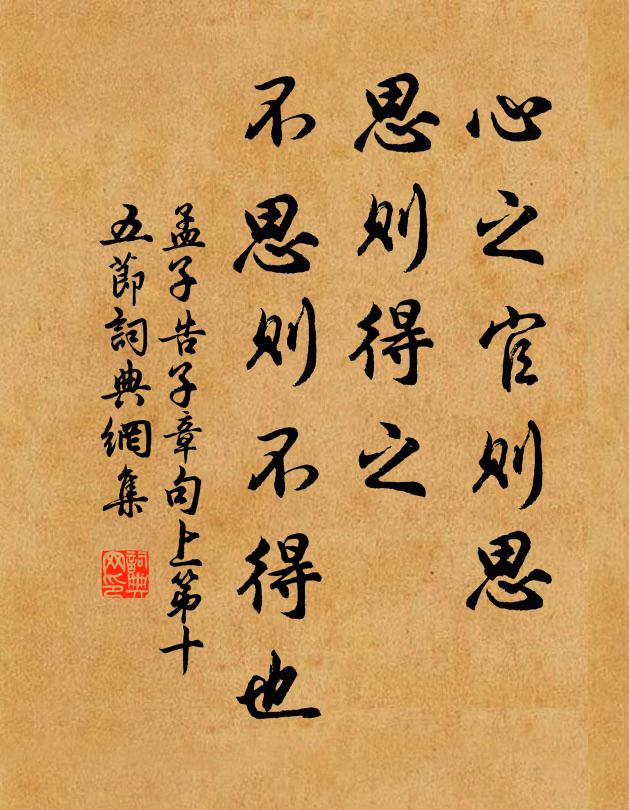 心之官則思
思則得之
不思則不得也
孟子告子章句上第十
五節詞典網集
詞典
网印